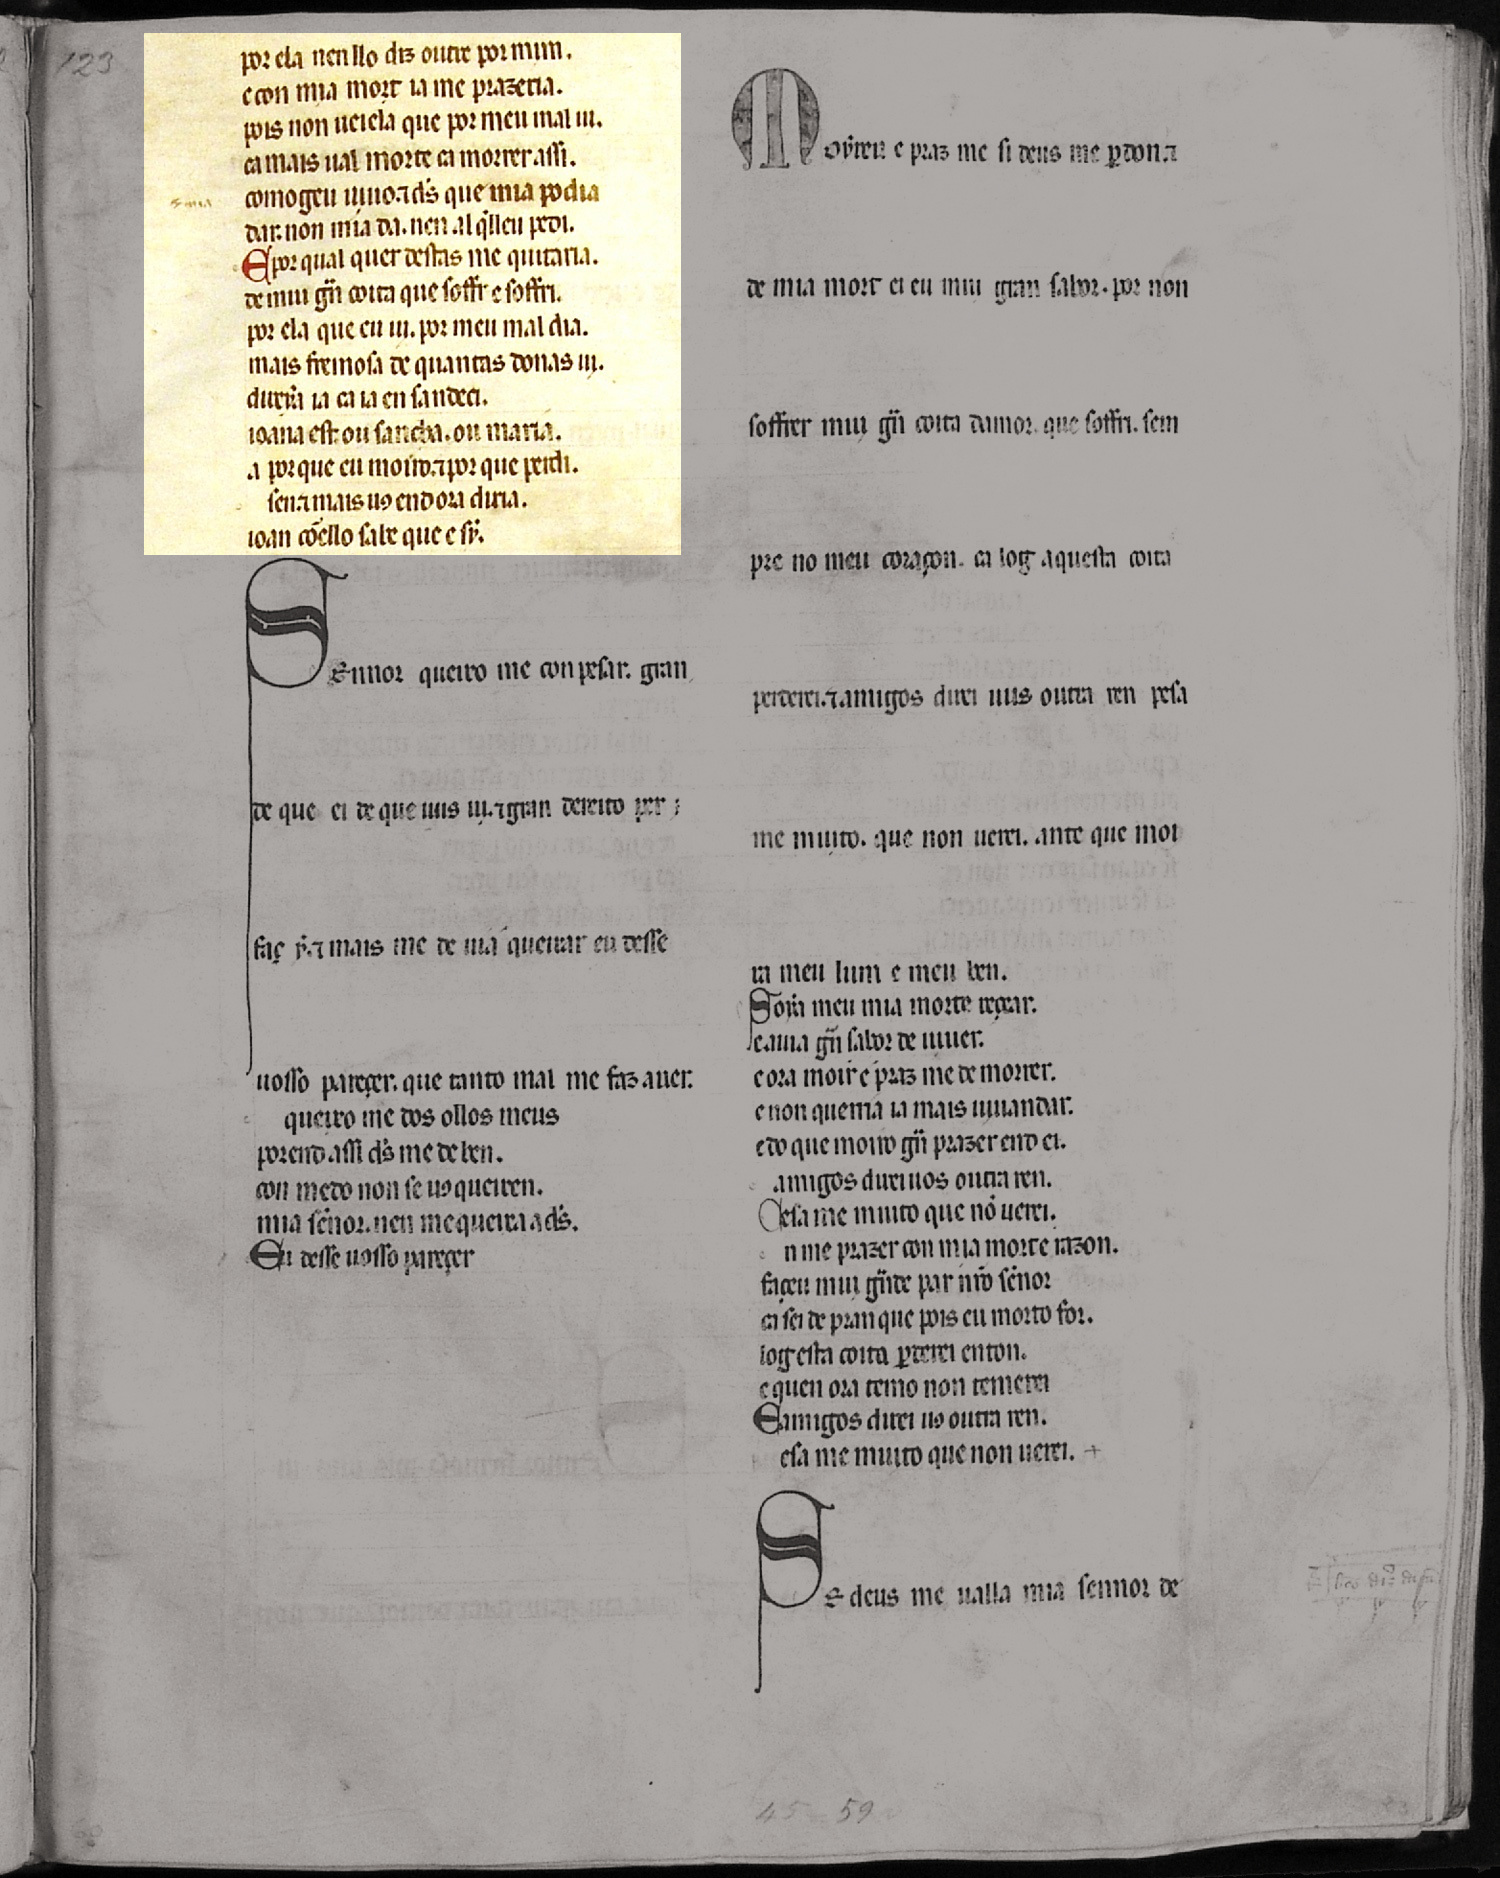 123
por ela nen llo diz outre por mim.
e con mia mort ia me prazeria.
pois non ueiela que por meu mal ui.
ca mais ual morte ca morrer assi.
comogeu uiuo. ⁊ d̄s que mia podia
dar. non mia da. nen al q̇lleu pedi.
E por qual quer destas me quitaria.
de mui gn̄ coita que soffr e soffri.
por ela que eu ui. por meu mal dia.
mais fremosa de quantas donas ui.
direia ia ca ia en sandeci.
ioana est. ou sancha. ou maria.
a por que eu moiro. ⁊ por que perdi.
sen. ⁊ mais uꝯ end ora diria.
ioan cōello sabe que e sy̆.
Sennor queixo me con pesar. gran
de que ei de que uus ui. ⁊ gran dereito per
faç y̆. ⁊ mais me de uia queixar eu desse
uosso pareçer. que tanto mal me faz auer.
queixo me dos ollos meus
porend. assi d̄s me de ben.
con medo non se uꝯ queixen.
mia sēnor. nen me queixa a d̄s.
Eu desse uosso pareçer
Moyreu e praz me si deus me ꝑdon. ⁊
de mia mort ei eu mui gran sabor. por non
soffrer mui gn̄ coita damor. que soffri. sem
pre no meu coraçon. ca log aquesta coita
perderei. ⁊ amigos direi uus outra ren pesa
me muito. que non uerei. ante que moi
ra meu lum e meu ben.
Soya meu mia morte reçear.
e auia gn̄ sabor de uiuer.
e ora moir e praz me de morrer.
e non querria ia mais uiuandar.
e do que moiro gn̄ prazer end ei.
amigos direi uos outra ren.
esa me muito que nō uerei.
n me prazer con mia morte razon.
façeu mui gn̄de par nr̄o sēnor
ca sei de pran que pois eu morto for.
log esta coita ꝑderei enton.
e quen ora temo non temerei
E amigos direi uꝯ outra ren.
esa me muito que non uerei. +
Se deus me ualla mia sennor de
45 59